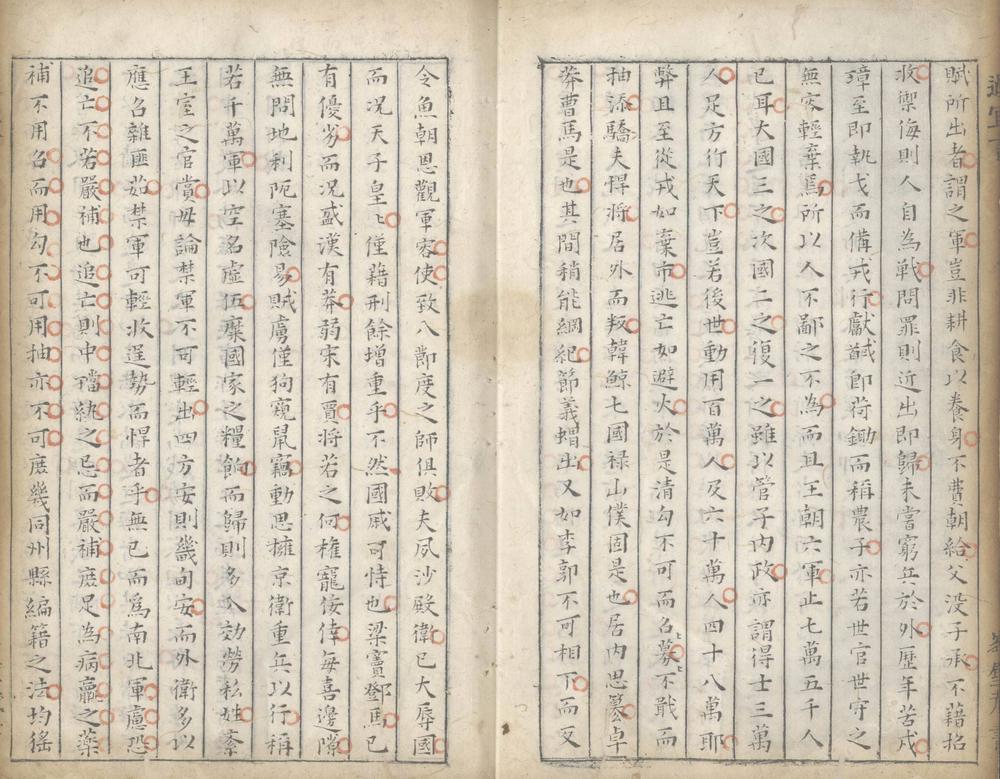 賦所出者謂之軍豈非耕食以養身不費朝給父没子承不藉招
收禦侮則人自為戰問罪則近出即歸未嘗窮兵於外歷年苦戍
璋至即執戈而備戎行獻馘即荷鋤而稱農子亦若世官世守之
無家輕棄焉所以人不鄙之不為而且王朝六軍止七萬五千人
已耳大國三之次國二之復一之雖以管子内政亦謂得士三萬
人足方行天下豈若後世動用百萬人及六十萬人四十八萬耶
弊且至從戎如棄市逃亡如避火於是清勾不可而名募不戢而
抽添驕夫悍將居外而叛韓鯨七國禄山僕固是也居内思篡卓
莽曹馬是也其間稍能綱紀節義蹭出又如李郭不可相下而又
令魚朝恩觀軍容使致八節度之師俱敗夫夙沙殿衛已大辱國
而况天子皇〻僅藉刑餘增重乎不然國戚可恃也梁竇鄧馬已
有優劣而况盛漢有莽弱宋有賈将若之何権寵佞倖每喜邊隙
無問地利阨塞險易賊虜僅狗窺鼠竊動思擁京衛重兵以行稱
若千萬軍以空名虚伍糜國家之糧餉而歸則多人効勞私姓紊
王室之官賞毋論禁軍不可輕出四方安則畿甸安而外衛多以
應名雜匪茹禁軍可輕收逞勢而悍者乎無已而為南北軍慮恐
追亡不若嚴補也追亡則中璫紈之忌而嚴補庶足為病羸之藥
補不用名而用勾不可用抽亦不可庶幾同州縣編籍之法均徭